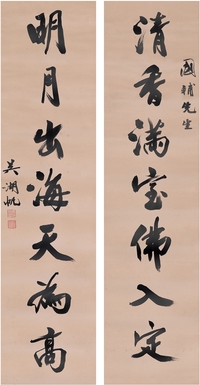 清香满室佛入定
國輔先生
明月出海天為高
吳湖帆